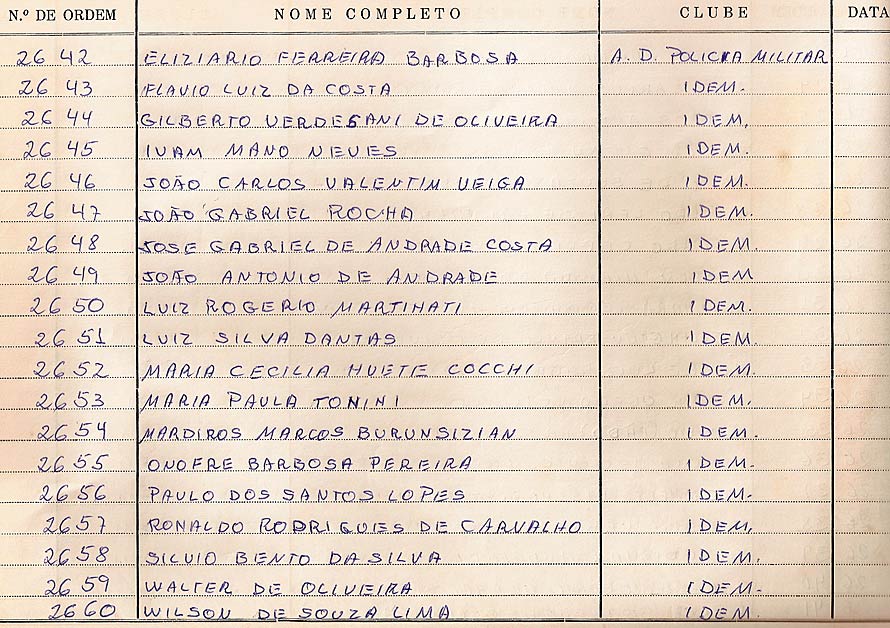 N.º DE ORDEM NOME COMPLETO CLUBE DATA
2642 ELIZIARIO FERREIRA BARBOSA A. D. POLICIA MILITAR
2643 FLAVIO LUIZ DA COSTA IDEM.
2644 GILBERTO VERDESANI DE OLIVEIRA IDEM.
2645 IVAM MANO NEVES IDEM.
2646 JOÃO CARLOS VALENTIM VEIGA IDEM.
2647 JOÃO GABRIEL ROCHA IDEM.
2648 JOSE GABRIEL DE ANDRADE COSTA IDEM.
2649 JOÃO ANTONIO DE ANDRADE IDEM
2650 LUIZ ROGERIO MARTINATI IDEM.
2651 LUIZ SILVA DANTAS IDEM.
2652 MARIA CECILIA HUETE COCCHI IDEM.
2653 MARIA PAULA TONINI IDEM.
2654 MARDIROS MARCOS BURUNSIZIAN IDEM.
2655 ONOFRE BARBOSA PEREIRA IDEM.
2656 PAULO DOS SANTOS LOPES IDEM.
2657 RONALDO RODRIGUES DE CARVALHO IDEM.
2658 SILVIO BENTO DA SILVA IDEM.
2659 WALTER DE OLIVEIRA IDEM.
2660 WILSON DE SOUZA LIMA IDEM.